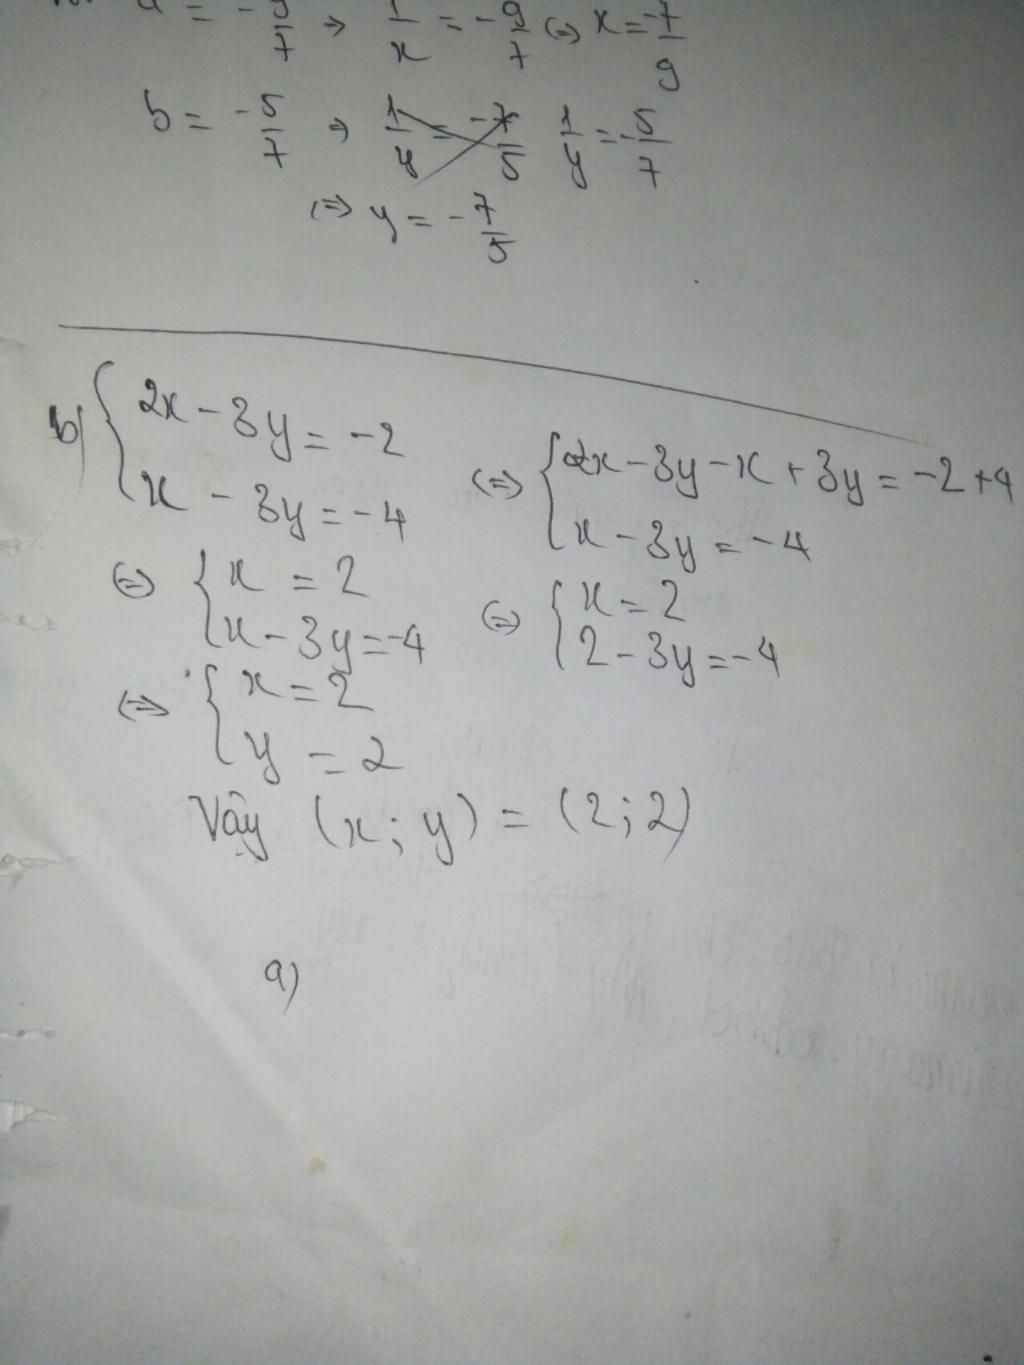 a = -9/7 → 1/x = -9/7 ⇔ x = -7/9
b = -5/7 → 1/y = -7/5 1/y = -5/7
⇔ y = -7/5
b) { 2x - 3y = -2
x - 3y = -4
⇔ { 2x - 3y - x + 3y = -2 + 4
x - 3y = -4
⇔ { x = 2
x - 3y = -4
⇔ { x = 2
2 - 3y = -4
⇔ { x = 2
y = 2
Vậy (x; y) = (2; 2)
a)